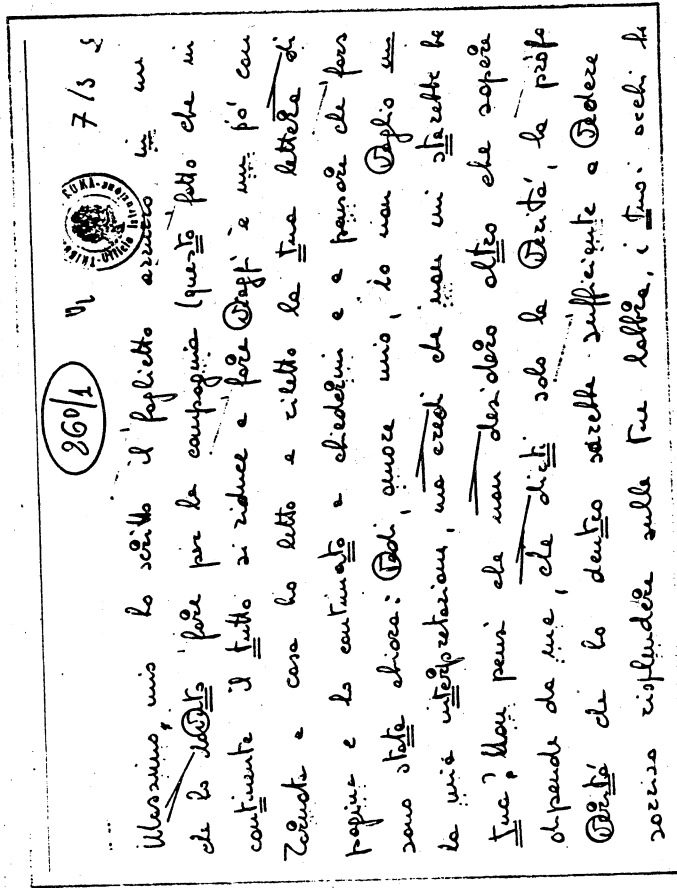 260/1
7/3
ROMA
Massimo, mio ho scritto il foglietto azzurro in un
che ho dovuto fare per la campagna (questo fatto che in
continente il tutto si riduce a fare viaggi è un po' con
Tornata a casa ho letto e riletto la tua lettera di
pagine e ho continuato a chiedermi e a pensare che fors
sono stata chiara: Vedi, amore mio, io non voglio im
la mia interpretazione, ma credi che non mi starebbe be
tua? Non pensi che non desidero altro che sapere
dipende da me, che dirti solo la Verità, la profo
Verità che ho dentro sarebbe sufficiente a Vedere
sorriso risplendere sulle tue labbra, i tuoi occhi b